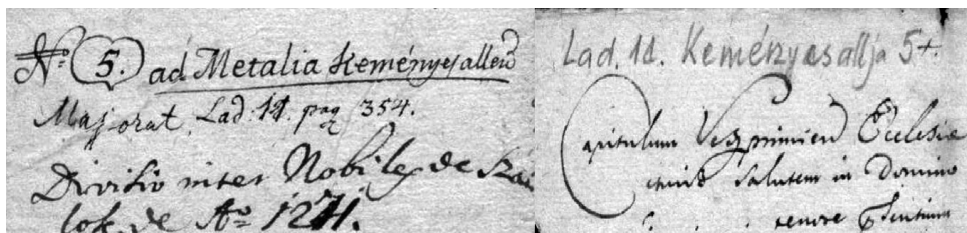 No. 5. ad Metalia Keményesallen
Majorat. Lad. 11. pag 354.
Divisio inter Nobiles de Szai
lok de Ao 1271.
Lad. 11. Keményesallja 5+.
Capitulum Veszprimien Ecclesiæ
salutem in Domino
tenore